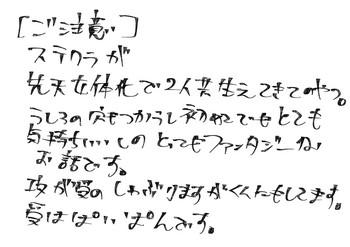 [ご注意]
ステクラが
先天女体化で2人共生えてきてのやつ。
うしろの穴もつかうし初めてでもとても
気持ちいいしの とってもファンタジーな
お話です。
攻が受のしゃぶりますがくんにもしてます。
受はぱいぱんです。